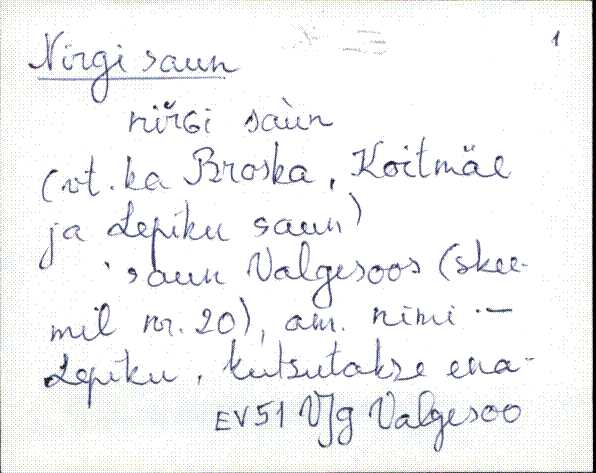 1
Nirgi saun
nirGi saùn
(vt. ka Broska, Koitmäe
ja Lepiku saun)
'saun Valgesoos (skee-
mil nr. 20), am. nimi -
Lepiku, kutsutakse ena-
EV51 Vg Valgesoo